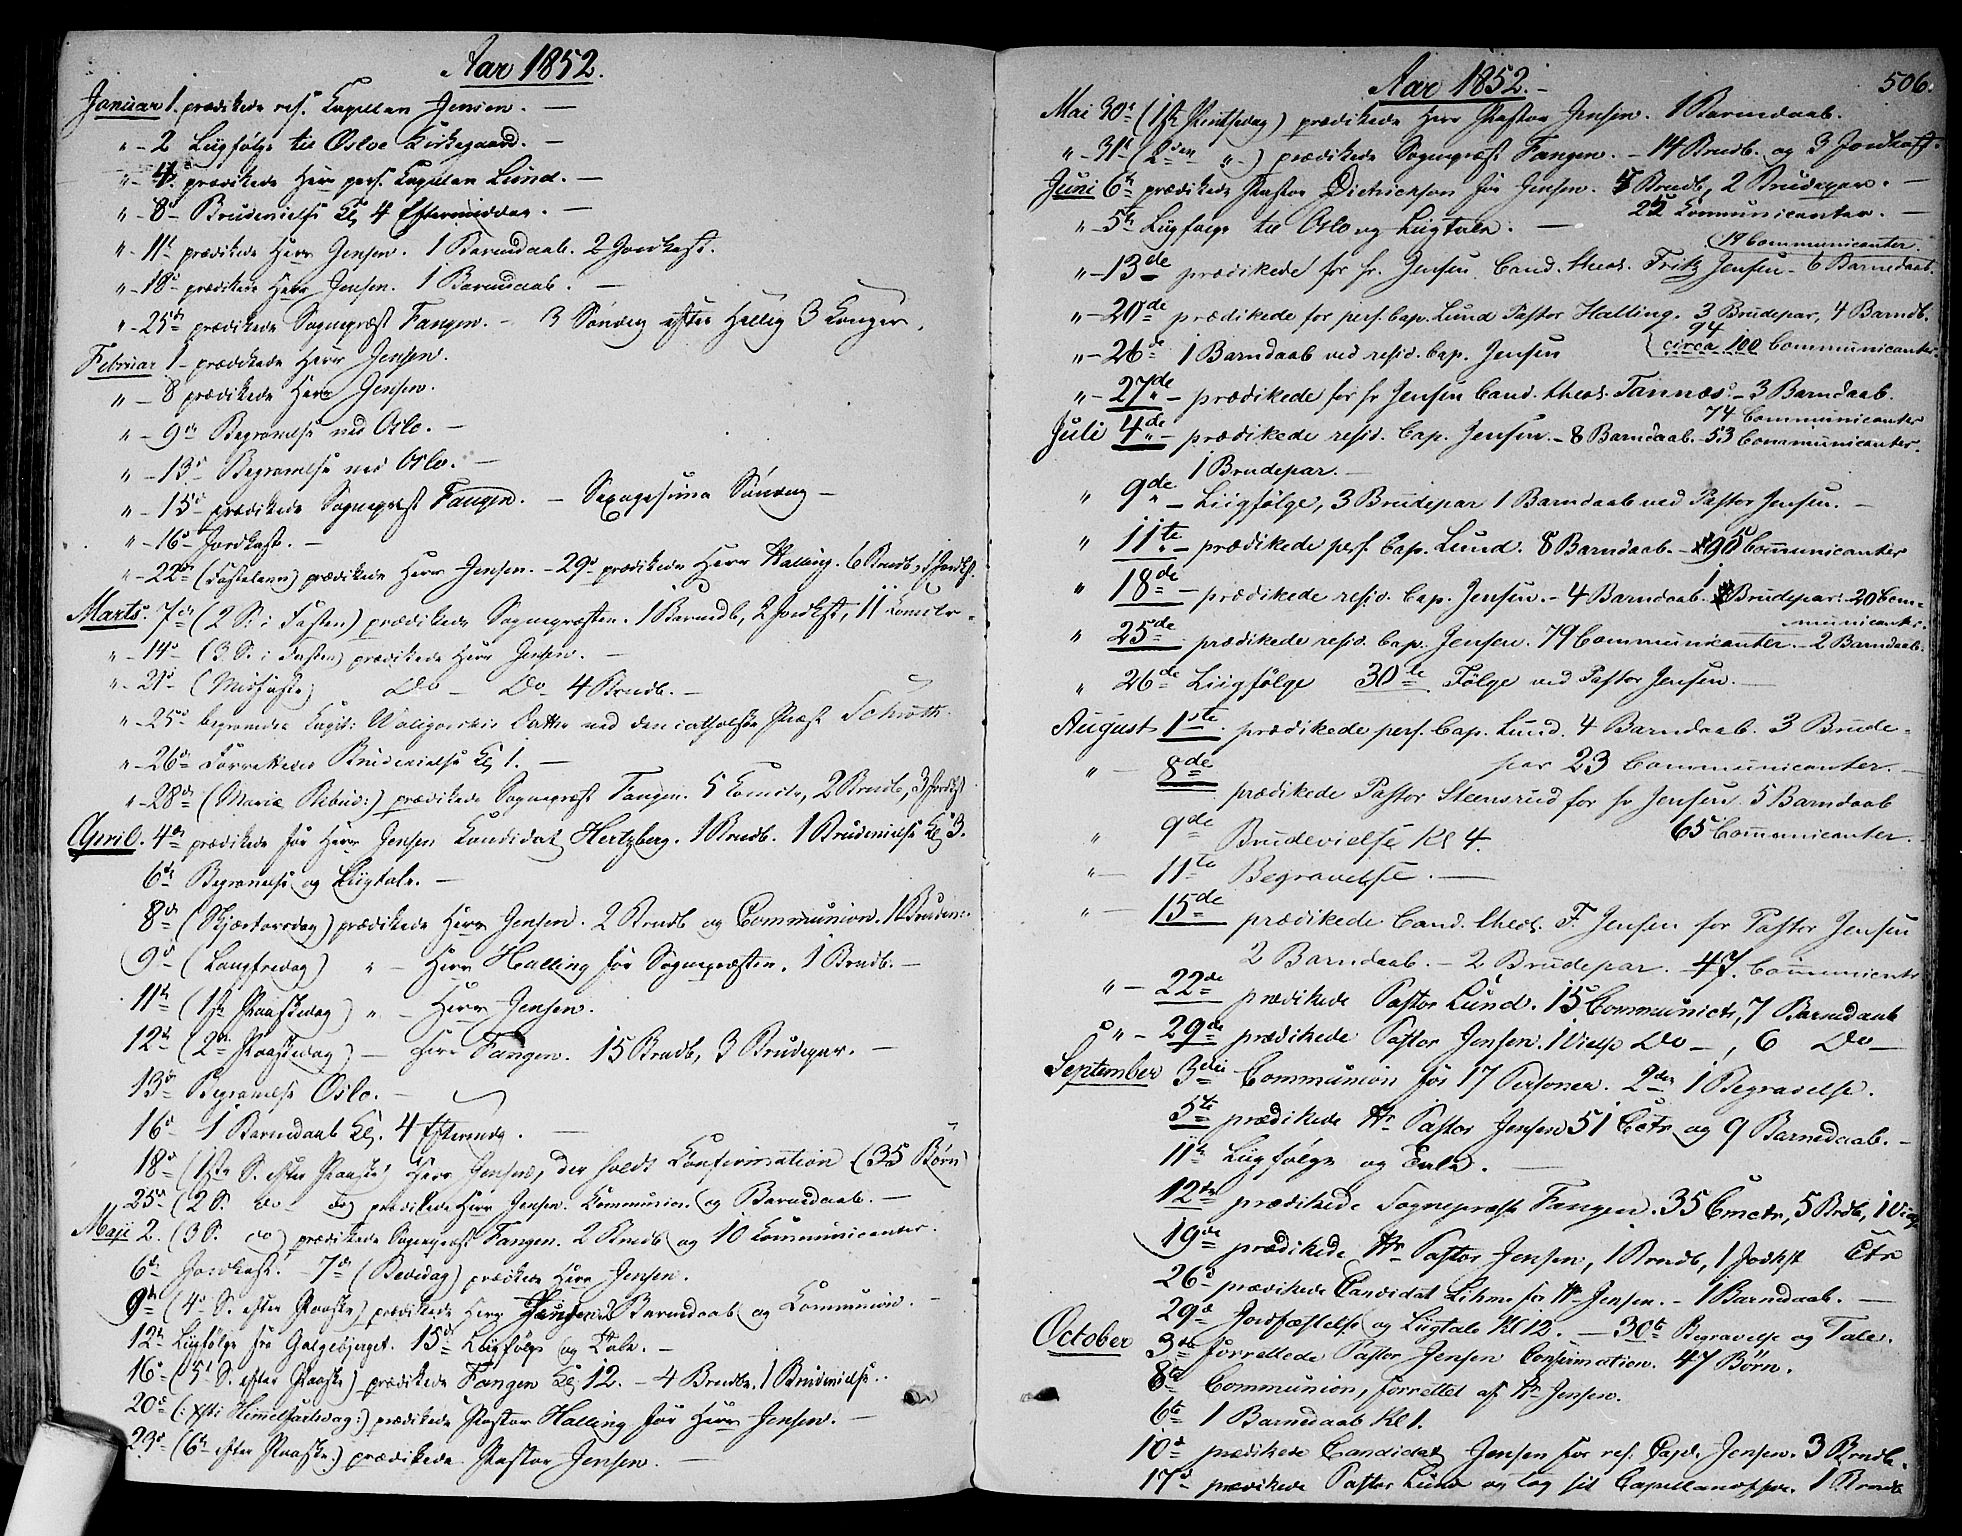 Aar 1852.
Januar 1. prædikede res. Capellan Jensen. —
" - 2 Liigfølge til Osloe Kirkegaard. —
" - 4. prædikede Herr pers. Capellan Lund. —
" - 8d - Brudevielse Kl 4 Eftermiddag. —
" - 11t prædikede Herr Jensen. 1 Barnedaab. 2 Jordkast.
" - 18d prædikede Herr Jensen. 1 Barnedaab. —
" - 25d prædikede Sognepræst Fangen. — 3 Søndag efter Hellig 3 Konger.
Februar 1 - prædikede Herr Jensen.
" - 8 prædikede Herr Jensen.
" - 9de Begravelse ved Oslo. —
" - 13d - Begravelse ved Oslo. —
" - 15d prædikede Sognepræst Fangen. — Sexagesima Søndag —
" - 16d - Jordkast. —
" - 22de (Fastelavn) prædikede Herr Jensen. - 29d prædikede Herr Halling. 6 Brndb, 1 Jordk.
Marts. 7de (2 S. i Fasten) prædikede Sognepræsten. 1 Barndb, 2 Jordkst, 11
" - 14d (3. S. i Fasten) prædikede Herr Jensen. —
" - 21d - (Midfaste) Do — Do 4 Brndb. —
" - 25d begravedes Capit: Waligorskis Datter ved den catholske Præst
" - 26d Forrettedes Brudevielse Kl 1. —
" - 28de (Mariæ Bebud:) prædikede Sognepræst Fangen. 5 2 Brndb, 3 Jordkst
April. 4de prædikede for Herr Jensen Kandidat Hertzberg. 1 Brndb. 1 Brudevielse Kl 3.
6de Begravelse og Liigtale. —
8de (Skjærtorsdag) prædikede Herr Jensen. 2 Brndb og Communion. 1 Brudev:
9d (Langfredag) " — Herr Halling for Sognepræsten. 1 Brndb. —
11te (1ste Paaskedag) " — Herr Jensen.
12te (2den Paaskedag) — Herr Fangen. 15 Brndb, 3 Brudepar. —
13d Begravelse Oslo. —
16d - 1 Barnedaab Kl. 4 Eftermdg. —
18d (1ste S. efter Paaske) Herr Jensen, der holdt Confirmation (35 Børn)
25d (2 S. do - do) prædikede Herr Jensen. Kommunion og Barnedaab. —
Maji 2. (3 S. do) prædikede Sognepræst Fangen. 2 Brndb og 10 Communicanter.
6de Jordkast. - 7de (Bededag) prædikede Herr Jensen.
9de (4d S. efter Paaske) prædikede Herr Jensen 2 Barnedaab og Kommunion. —
12te Liigfølge fra Galgebjerget. 15de Liigfølge og Tale. —
16d (5d S. efter Paaske) prædikede Fangen Kl 12. — 4 Brndb. 1 Brudevielse.
20d (: Himmelfartsdag:) prædikede Pastor Halling for Herr Jensen. —
23d (6te efter Paaske.) prædikede Pastor Jensen. —
Aar 1852. -
506.
Mai 30t (1ste Pintsedag) prædikede Herr Pastor Jensen. 1 Barnedaab.
" - 31t (2den " -) prædikede Sognepræst Fangen. - 14 Brndb. og 3 Jordkast.
Juni 6te prædikede Pastor Dietrichson for Jensen. 5 Brndb, 2 Brudepar. —
22 Kommunicanter. —
" - 5te Liigfølge til Oslo og Liigtale. —
(19 Communicanter.
" - 13de prædikede for hr Jensen Cand. theol. Fritz Jensen - 6 Barnedaab.
" - 20de prædikede for pers. Cap. Lund Pastor Halling. 3 Brudepar, 4 Barndb.
94
" - 26de 1 Barndaab ved resid. Cap. Jensen (circa 100 Communicanter.
" - 27de - prædikede for hr Jensen Cand. theol. Tannæs. - 3 Barndaab.
74 Communicanter
Juli 4de - prædikede resid. Cap. Jensen. - 8 Barndaab. 53 Communicanter.
1 Brudepar. —
" 9de - Liigfølge, 3 Brudepar 1 Barndaab ved Pastor Jensen. —
" 11te - prædikede pers. Cap. Lund. 8 Barndaab. - 95 Communicanter
" 18de - prædikede resid. Cap. Jensen. - 4 Barndaab. 1 Brudepar. 20 Com-
municanter.
" 25de prædikede resid. Cap. Jensen. 79 Communicanter - 2 Barndaab.
" 26de Liigfølge 30te Følge ved Pastor Jensen. —
August 1ste prædikede pers. Cap. Lund. 4 Barndaab. 3 Brude-
par 23 Communicanter. —
" — 8de prædikede Pastor Steensrud for hr Jensen 5 Barndaab
65 Communicanter.
" 9de Brudevielse Kl 4.
" — 11te Begravelse. —
" — 15de prædikede Cand. theol. F. Jensen for Pastor Jensen
2 Barndaab. - 2 Brudepar. 47. Communicants
" — 22de prædikede Pastor Lund. 15 Communicts, 7 Barnedaab
" - 29de prædikede Pastor Jensen. 1 Vielse Do —, 6 Do —
September 3die Communion for 17 Personer. 2den 1 Begravelse.
5te prædikede Hr Pastor Jensen 51 Cctr og 9 Barnedaab. —
11te Liigfølge og Tale. —
12te prædikede Sognepræst Fangen. 35 Cmctr, 5 Brdb, 1 Viels
19de prædikede Hr Pastor Jensen, 1 Brndb, 1 Jodkst Cctr
26d prædikede Candidat for Hr Jensen. - 1 Barndaab. —
29de Jordfæstelse og Liigtale Kl 12. — 30te Begravelse og Tale.
October 3die forrettede Pastor Jensen Confirmation. 47 Børn.
8de Communion, forrettet af Hr Jensen.
6te 1 Barnedaab Kl 1.
10d prædikede Candidat Jensen for res. Cap. Jensen. 3 Brndb.
17d prædikede Pastor Lund og tog sit Capellanoffer. 1 Brndb